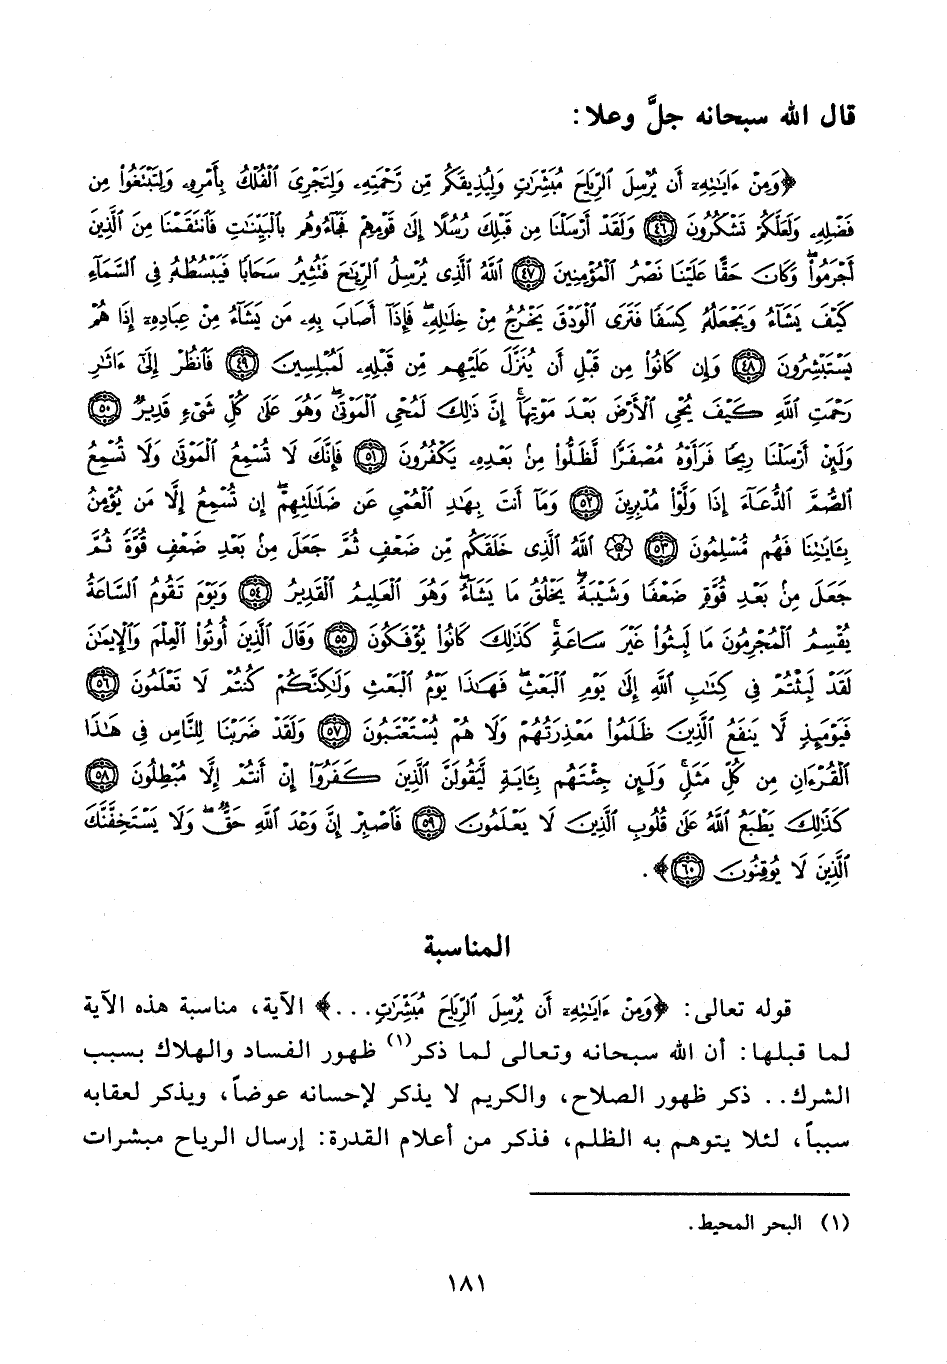 قال الله سبحانه جلَّ وعلا:
﴿وَمِنْ ءَايَـٰتِهِۦٓ أَن يُرْسِلَ ٱلرِّيَاحَ مُبَشِّرَٰتٍ وَلِيُذِيقَكُم مِّن رَّحْمَتِهِۦ وَلِتَجْرِىَ ٱلْفُلْكُ بِأَمْرِهِۦ وَلِتَبْتَغُوا۟ مِن
فَضْلِهِۦ وَلَعَلَّكُمْ تَشْكُرُونَ ٤٦ وَلَقَدْ أَرْسَلْنَا مِن قَبْلِكَ رُسُلًا إِلَىٰ قَوْمِهِمْ فَجَآءُوهُم بِٱلْبَيِّنَـٰتِ فَٱنتَقَمْنَا مِنَ ٱلَّذِينَ
أَجْرَمُوا۟ ۖ وَكَانَ حَقًّا عَلَيْنَا نَصْرُ ٱلْمُؤْمِنِينَ ٤٧ ٱللَّهُ ٱلَّذِى يُرْسِلُ ٱلرِّيَـٰحَ فَتُثِيرُ سَحَابًا فَيَبْسُطُهُۥ فِى ٱلسَّمَآءِ
كَيْفَ يَشَآءُ وَيَجْعَلُهُۥ كِسَفًا فَتَرَى ٱلْوَدْقَ يَخْرُجُ مِنْ خِلَـٰلِهِۦ ۖ فَإِذَآ أَصَابَ بِهِۦ مَن يَشَآءُ مِنْ عِبَادِهِۦٓ إِذَا هُمْ
يَسْتَبْشِرُونَ ٤٨ وَإِن كَانُوا۟ مِن قَبْلِ أَن يُنَزَّلَ عَلَيْهِم مِّن قَبْلِهِۦ لَمُبْلِسِينَ ٤٩ فَٱنظُرْ إِلَىٰٓ ءَاثَـٰرِ
رَحْمَتِ ٱللَّهِ كَيْفَ يُحْىِ ٱلْأَرْضَ بَعْدَ مَوْتِهَآ ۚ إِنَّ ذَٰلِكَ لَمُحْىِ ٱلْمَوْتَىٰ ۖ وَهُوَ عَلَىٰ كُلِّ شَىْءٍ قَدِيرٌ ٥٠
وَلَئِنْ أَرْسَلْنَا رِيحًا فَرَأَوْهُ مُصْفَرًّا لَّظَلُّوا۟ مِنۢ بَعْدِهِۦ يَكْفُرُونَ ٥١ فَإِنَّكَ لَا تُسْمِعُ ٱلْمَوْتَىٰ وَلَا تُسْمِعُ
ٱلصُّمَّ ٱلدُّعَآءَ إِذَا وَلَّوْا۟ مُدْبِرِينَ ٥٢ وَمَآ أَنتَ بِهَـٰدِ ٱلْعُمْىِ عَن ضَلَـٰلَتِهِمْ ۖ إِن تُسْمِعُ إِلَّا مَن يُؤْمِنُ
بِـَٔايَـٰتِنَا فَهُم مُّسْلِمُونَ ٥٣ ٱللَّهُ ٱلَّذِى خَلَقَكُم مِّن ضَعْفٍ ثُمَّ جَعَلَ مِنۢ بَعْدِ ضَعْفٍ قُوَّةً ثُمَّ
جَعَلَ مِنۢ بَعْدِ قُوَّةٍ ضَعْفًا وَشَيْبَةً ۚ يَخْلُقُ مَا يَشَآءُ ۖ وَهُوَ ٱلْعَلِيمُ ٱلْقَدِيرُ ٥٤ وَيَوْمَ تَقُومُ ٱلسَّاعَةُ
يُقْسِمُ ٱلْمُجْرِمُونَ مَا لَبِثُوا۟ غَيْرَ سَاعَةٍ ۚ كَذَٰلِكَ كَانُوا۟ يُؤْفَكُونَ ٥٥ وَقَالَ ٱلَّذِينَ أُوتُوا۟ ٱلْعِلْمَ وَٱلْإِيمَـٰنَ
لَقَدْ لَبِثْتُمْ فِى كِتَـٰبِ ٱللَّهِ إِلَىٰ يَوْمِ ٱلْبَعْثِ ۖ فَهَـٰذَا يَوْمُ ٱلْبَعْثِ وَلَـٰكِنَّكُمْ كُنتُمْ لَا تَعْلَمُونَ ٥٦
فَيَوْمَئِذٍ لَّا يَنفَعُ ٱلَّذِينَ ظَلَمُوا۟ مَعْذِرَتُهُمْ وَلَا هُمْ يُسْتَعْتَبُونَ ٥٧ وَلَقَدْ ضَرَبْنَا لِلنَّاسِ فِى هَـٰذَا
ٱلْقُرْءَانِ مِن كُلِّ مَثَلٍ ۚ وَلَئِن جِئْتَهُم بِـَٔايَةٍ لَّيَقُولَنَّ ٱلَّذِينَ كَفَرُوٓا۟ إِنْ أَنتُمْ إِلَّا مُبْطِلُونَ ٥٨
كَذَٰلِكَ يَطْبَعُ ٱللَّهُ عَلَىٰ قُلُوبِ ٱلَّذِينَ لَا يَعْلَمُونَ ٥٩ فَٱصْبِرْ إِنَّ وَعْدَ ٱللَّهِ حَقٌّ ۖ وَلَا يَسْتَخِفَّنَّكَ
ٱلَّذِينَ لَا يُوقِنُونَ ٦٠﴾.
المناسبة
قوله تعالى: ﴿وَمِنْ ءَايَـٰتِهِۦٓ أَن يُرْسِلَ ٱلرِّيَاحَ مُبَشِّرَٰتٍ...﴾ الآية، مناسبة هذه الآية
لما قبلها: أن الله سبحانه وتعالى لما ذكر(١) ظهور الفساد والهلاك بسبب
الشرك.. ذكر ظهور الصلاح، والكريم لا يذكر لإحسانه عوضاً، ويذكر لعقابه
سبباً، لئلا يتوهم به الظلم، فذكر من أعلام القدرة: إرسال الرياح مبشرات
(١) البحر المحيط.
١٨١